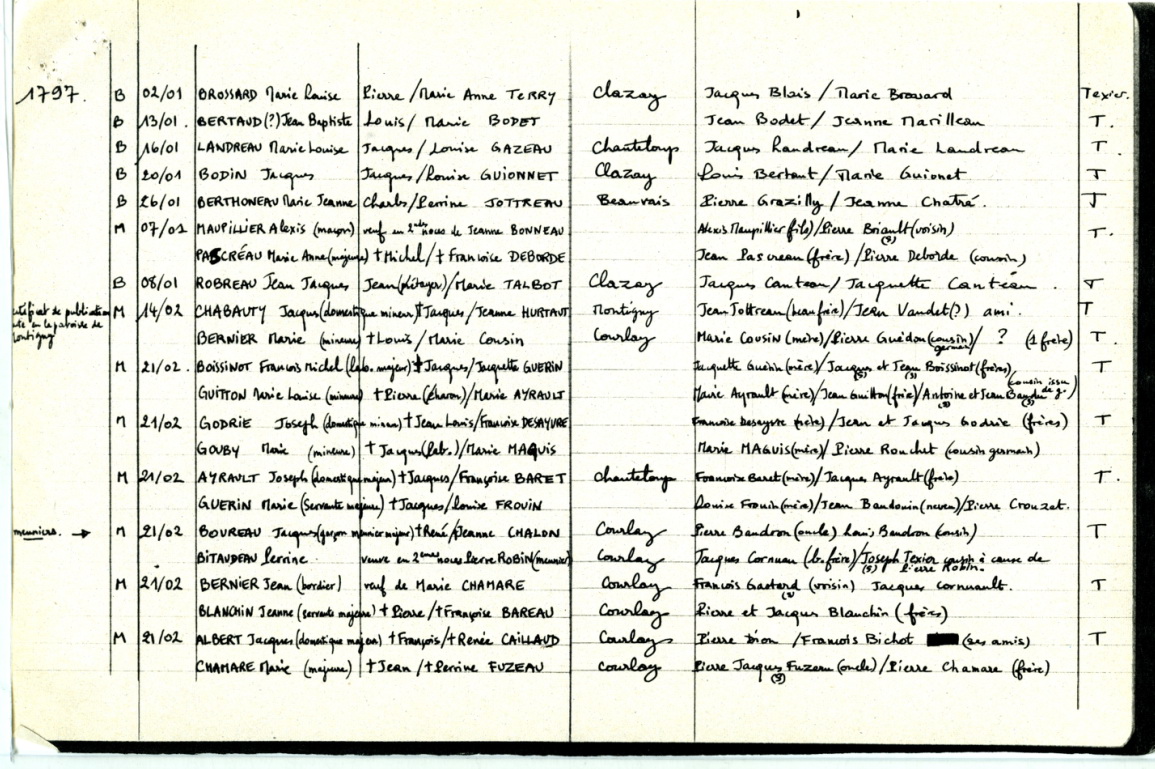 1797. B 02/01 BROSSARD Marie Louise Pierre / Marie Anne TERRY Clazay Jacques Blais / Marie Brossard Texier.
B 13/01. BERTAUD(?) Jean Baptiste Louis / Marie BODET Jean Bodet / Jeanne Marilleau T.
B 16/01 LANDREAU Marie Louise Jacques / Louise GAZEAU Chanteloup Jacques Landreau / Marie Landreau T.
B 20/01 BODIN Jacques Jacques / Louise GUIONNET Clazay Louis Bertaut / Marie Guionet T
B 26/01 BERTHONEAU Marie Jeanne Charles / Perrine JOTTREAU Beauvais Pierre Grazilly / Jeanne Chatré. T
M 07/01 MAUPILLIER Alexis (maçon) veuf en 2des nous de Jeanne BONNEAU Alexis Maupillier (fils) / Pierre Briault (voisin) T.
(S)
PASCRÉAU Marie Anne (majeure) † Michel / † Francoise DEBORDE Jean Pascreau (frère) / Pierre Deborde (cousin)
B 08/01 ROBREAU Jean Jacques Jean (métayer) / Marie TALBOT Clazay Jacques Canteau / Jacquette Cantéau. T
certificat de publication M 14/02 CHABAUTY Jacques (domestique mineur) † Jacques / Jeanne HURTAUT Montigny Jean Jottreau (beau frère) / Jean Vandet(?) ami. T
paroisse de
BERNIER Marie (mineure) † Louis / Marie Cousin Courlay Marie COUSIN (mère) / Pierre Guédon (cousin) / ? (1 frère) T.
montigny germain
M 21/02. BOISSINOT François Michel (lab. majeur) † Jacques / Jacquette GUERIN Jacquette Guérin (mère) / Jacques et Jean Boissinot (frères), T
(S) (S) (cousin issu
GUITTON Marie Louise (mineure) † Pierre (charon) / Marie AYRAULT Marie Ayrault (mère) / Jean Guitton (frère) / Antoine et Jean Baudu de g.)
(S) (S)
M 21/02 GODRIE Joseph (domestique mineur) † Jean Louis / Francoise DESAYURE Francoise Desayvre (mère) / Jean et Jacques Godrie (frères) T
GOUBY Marie (mineure) † Jacques (lab.) / Marie MAQUIS Marie MAGUIS (mère) / Pierre Rouchet (cousin germain)
M 21/02 AYRAULT Joseph (domestique majeur) † Jacques / Françoise BARET Chanteloup Francoise Baret (mère) / Jacques Ayrault (frère) T.
GUERIN Marie (Servante majeure) † Jacques / Louise FROUIN Louise Frouin (mère) / Jean Baudouin (neveu) / Pierre Crouzat.
meuniers. → M 21/02 BOUREAU Jacques (garçon meunier majeur) † René / Jeanne CHALON Courlay Pierre Baudron (oncle) Louis Baudron (cousin) T
BITAUDEAU Perrine. veuve en 2emes nous Pierre ROBIN (meunier) Courlay Jacques Cornuau (b. frère) / Joseph Texier cousin à cause de
(S) Pierre Robin.
M 21/02 BERNIER Jean (bordier) veuf de Marie CHAMARE Courlay Francois Gastard (voisin) Jacques cornuault. T
(S)
BLANCHIN Jeanne (servante majeure) † Pierre / † Françoise BAREAU Courlay Pierre et Jacques Blanchin (frères)
M 21/02 ALBERT Jacques (domestique majeur) † François / † Renée CAILLAUD Courlay Pierre Dion / Francois Bichot (ses amis) T
CHAMARE Marie (majeure) † Jean / † Perrine FUZEAU Courlay Pierre Jacques Fuzeau (oncle) / Pierre Chamare (frère)
(S)